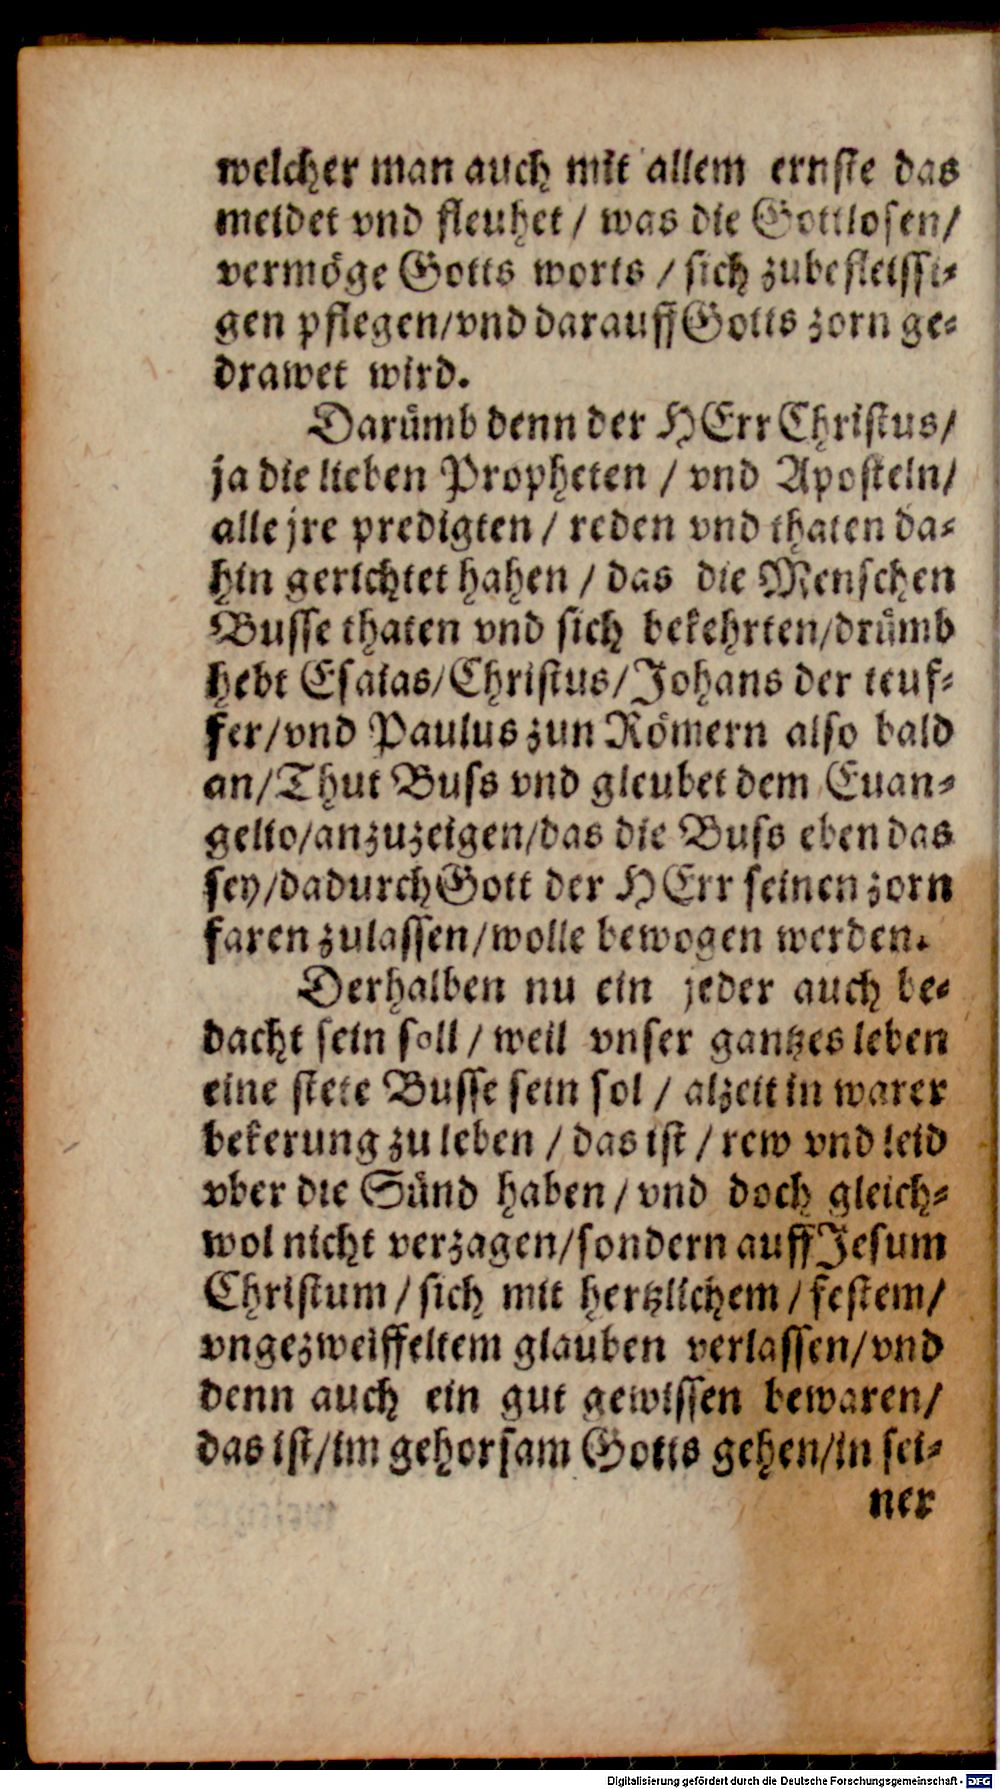 welcher man auch mit allem ernste das
meidet vnd fleuhet / was die Gottlosen/
vermöge Gotts worts / sich zubefleissi-
gen pflegen/vnd darauff Gotts zorn ge-
drawet wird.
Darůmb denn der HErr Christus/
ja die lieben Propheten / vnd Aposteln/
alle jre predigten / reden vnd thaten da-
hin gerichtet hahen / das die Menschen
Busse thaten vnd sich bekehrten/drůmb
hebt Esaias/Christus/Johans der teuf-
fer/vnd Paulus zun Römern also bald
an/Thut Buss vnd gleubet dem Euan-
gelio/anzuzeigen/das die Buss eben das
sey/dadurch Gott der HErr seinen zorn
faren zulassen/wolle bewogen werden.
Derhalben nu ein jeder auch be-
dacht sein soll / weil vnser gantzes leben
eine stete Busse sein sol / alzeit in warer
bekerung zu leben / das ist / rew vnd leid
vber die Sůnd haben / vnd doch gleich-
wol nicht verzagen/sondern auff Jesum
Christum / sich mit hertzlichem / festem/
vngezweiffeltem glauben verlassen/vnd
denn auch ein gut gewissen bewaren/
das ist/im gehorsam Gotts gehen/in sei-
ner
Digitalisierung gefördert durch die Deutsche Forschungsgemeinschaft - DFG